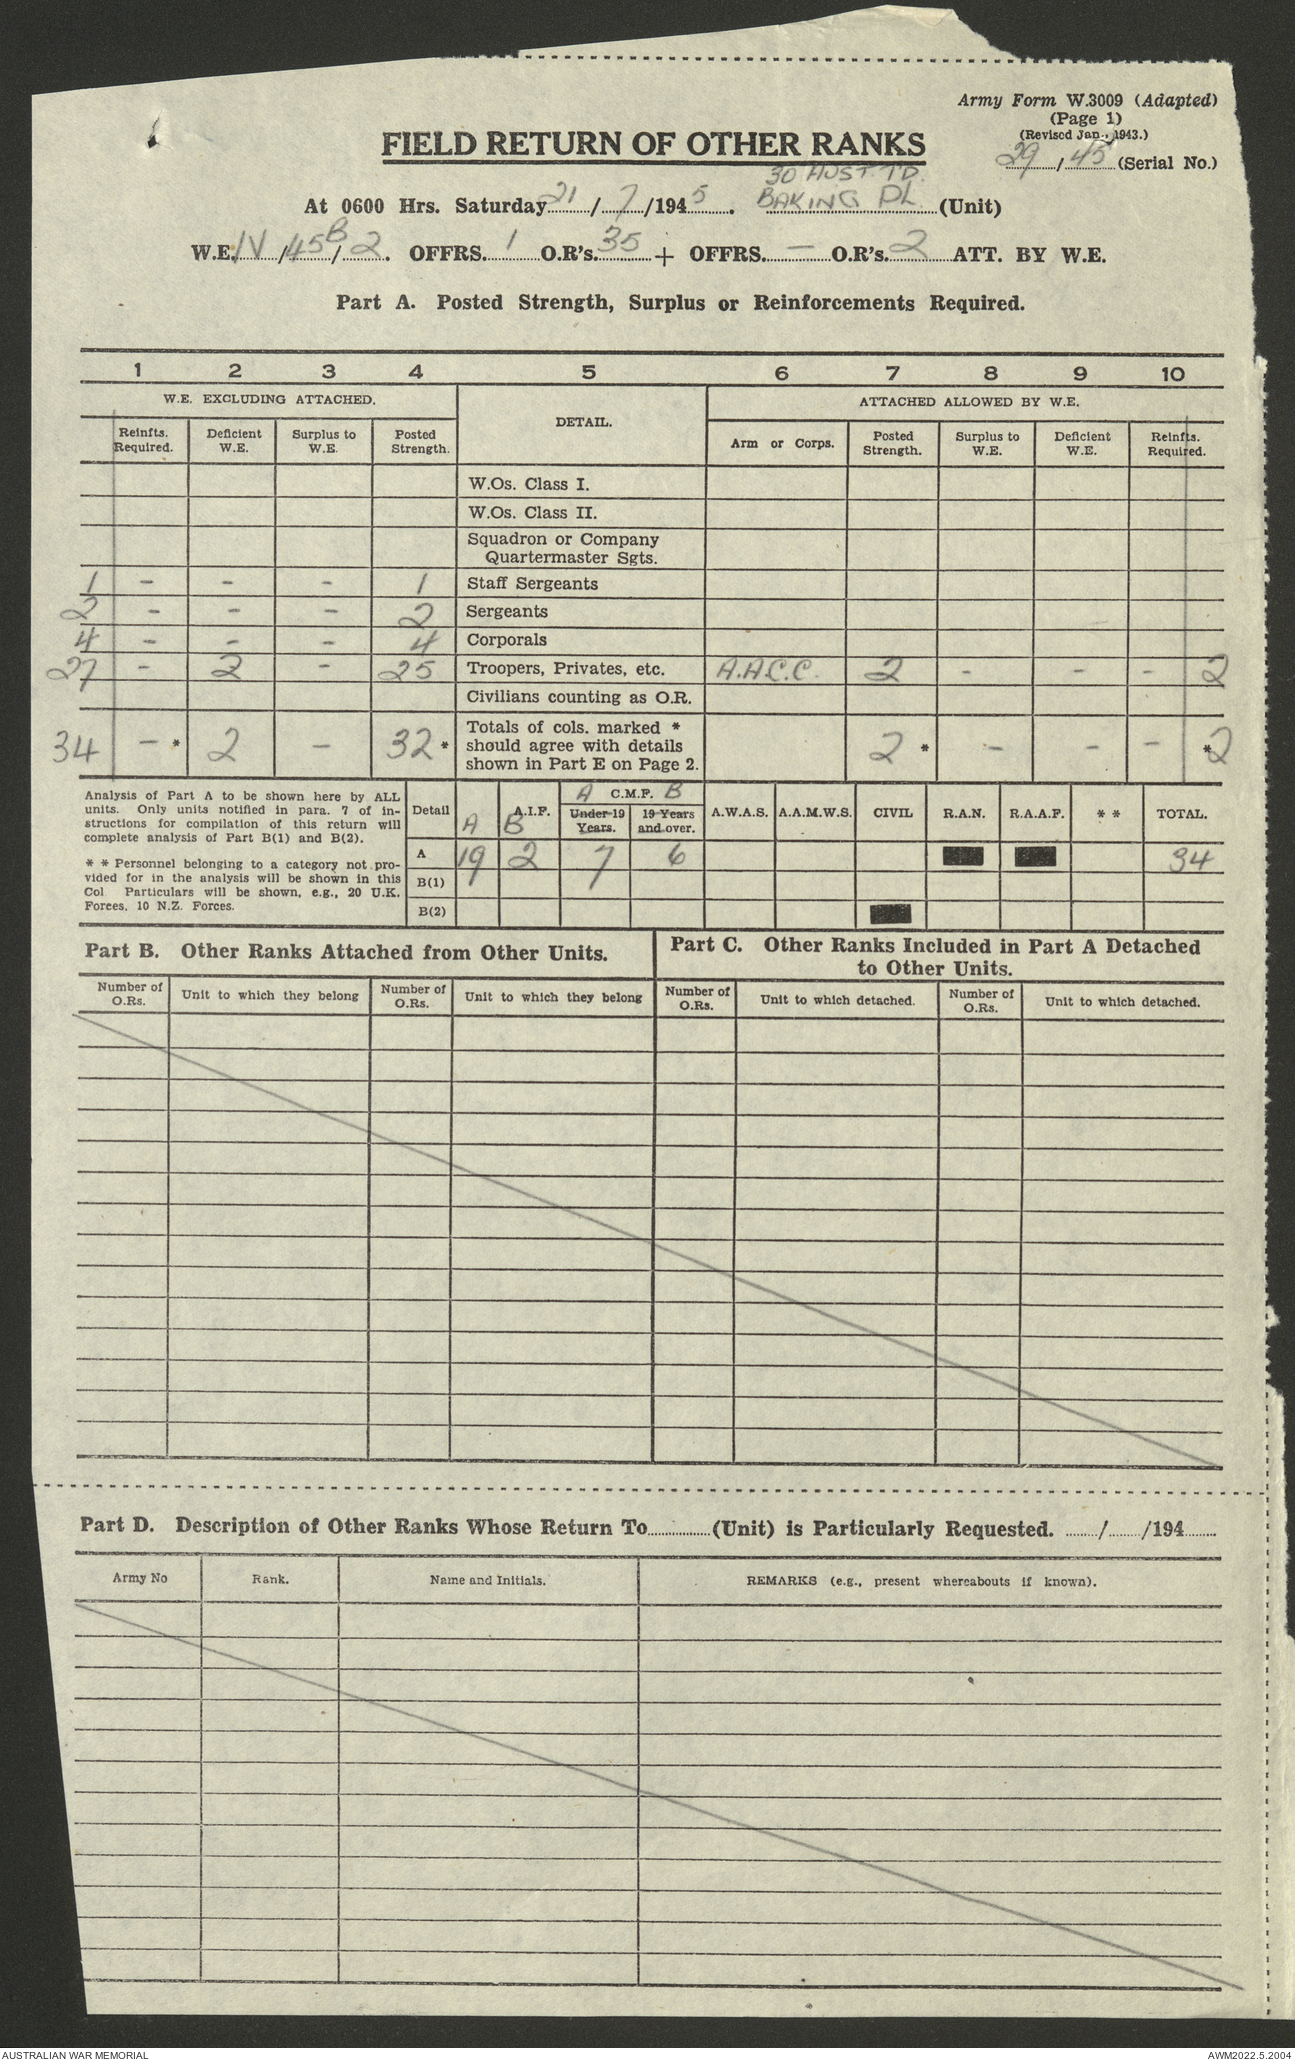 Army Form W.3009 (Adapted)
(Page 1)
(Revised Jan., 1943.)
29/45 (Serial No.)
FIELD RETURN OF OTHER RANKS
30 AUST. TD.
At 0600 Hrs. Saturday 21/7/1945. BAKING PL. (Unit)
W.E. IV/45B/2. OFFRS. 1 O.R's. 35 + OFFRS. — O.R's. 2 ATT. BY W.E.
Part A. Posted Strength, Surplus or Reinforcements Required.
1 2 3 4 5 6 7 8 9 10
W.E. EXCLUDING ATTACHED. DETAIL. ATTACHED ALLOWED BY W.E.
Reinfts. Required. Deficient W.E. Surplus to W.E. Posted Strength. Arm or Corps. Posted Strength. Surplus to W.E. Deficient W.E. Reinfts. Required.
W.Os. Class I.
W.Os. Class II.
Squadron or Company
Quartermaster Sgts.
1 - - - 1 Staff Sergeants
2 - - - 2 Sergeants
4 - - - 4 Corporals
27 - 2 - 25 Troopers, Privates, etc. A.A.C.C. 2 - - - 2
Civilians counting as O.R.
Totals of cols. marked *
34 - * 2 - 32 * should agree with details 2 * - - - * 2
shown in Part E on Page 2.
Analysis of Part A to be shown here by ALL
units. Only units notified in para. 7 of in-
structions for compilation of this return will
complete analysis of Part B(1) and B(2).
* * Personnel belonging to a category not pro-
vided for in the analysis will be shown in this
Col Particulars will be shown, e.g., 20 U.K.
Forces, 10 N.Z. Forces.
Detail A A.I.F. B A C.M.F. B Under 19 Years. 19 Years and over. A.W.A.S. A.A.M.W.S. CIVIL R.A.N. R.A.A.F. * * TOTAL.
A 19 2 7 6 34
B(1)
B(2)
Part B. Other Ranks Attached from Other Units.
Part C. Other Ranks Included in Part A Detached
to Other Units.
Number of O.Rs. Unit to which they belong Number of O.Rs. Unit to which they belong Number of O.Rs. Unit to which detached. Number of O.Rs. Unit to which detached.
Part D. Description of Other Ranks Whose Return To............(Unit) is Particularly Requested. ....../....../194......
Army No Rank. Name and Initials. REMARKS (e.g., present whereabouts if known).
AUSTRALIAN WAR MEMORIAL AWM2022.5.2004